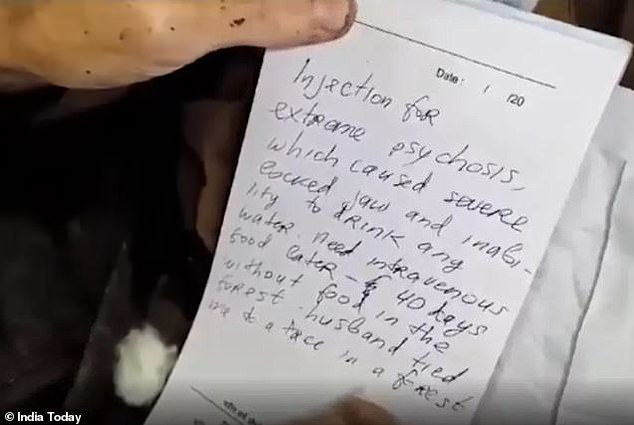 Date :    /    /20
Injection for
extreme psychosis,
which caused severe
locked jaw and inabi-
lity to drink any
water. Need intravenous
food later - 40 days
without food in the
forest. husband tied
me to a tree in a forest
© India Today